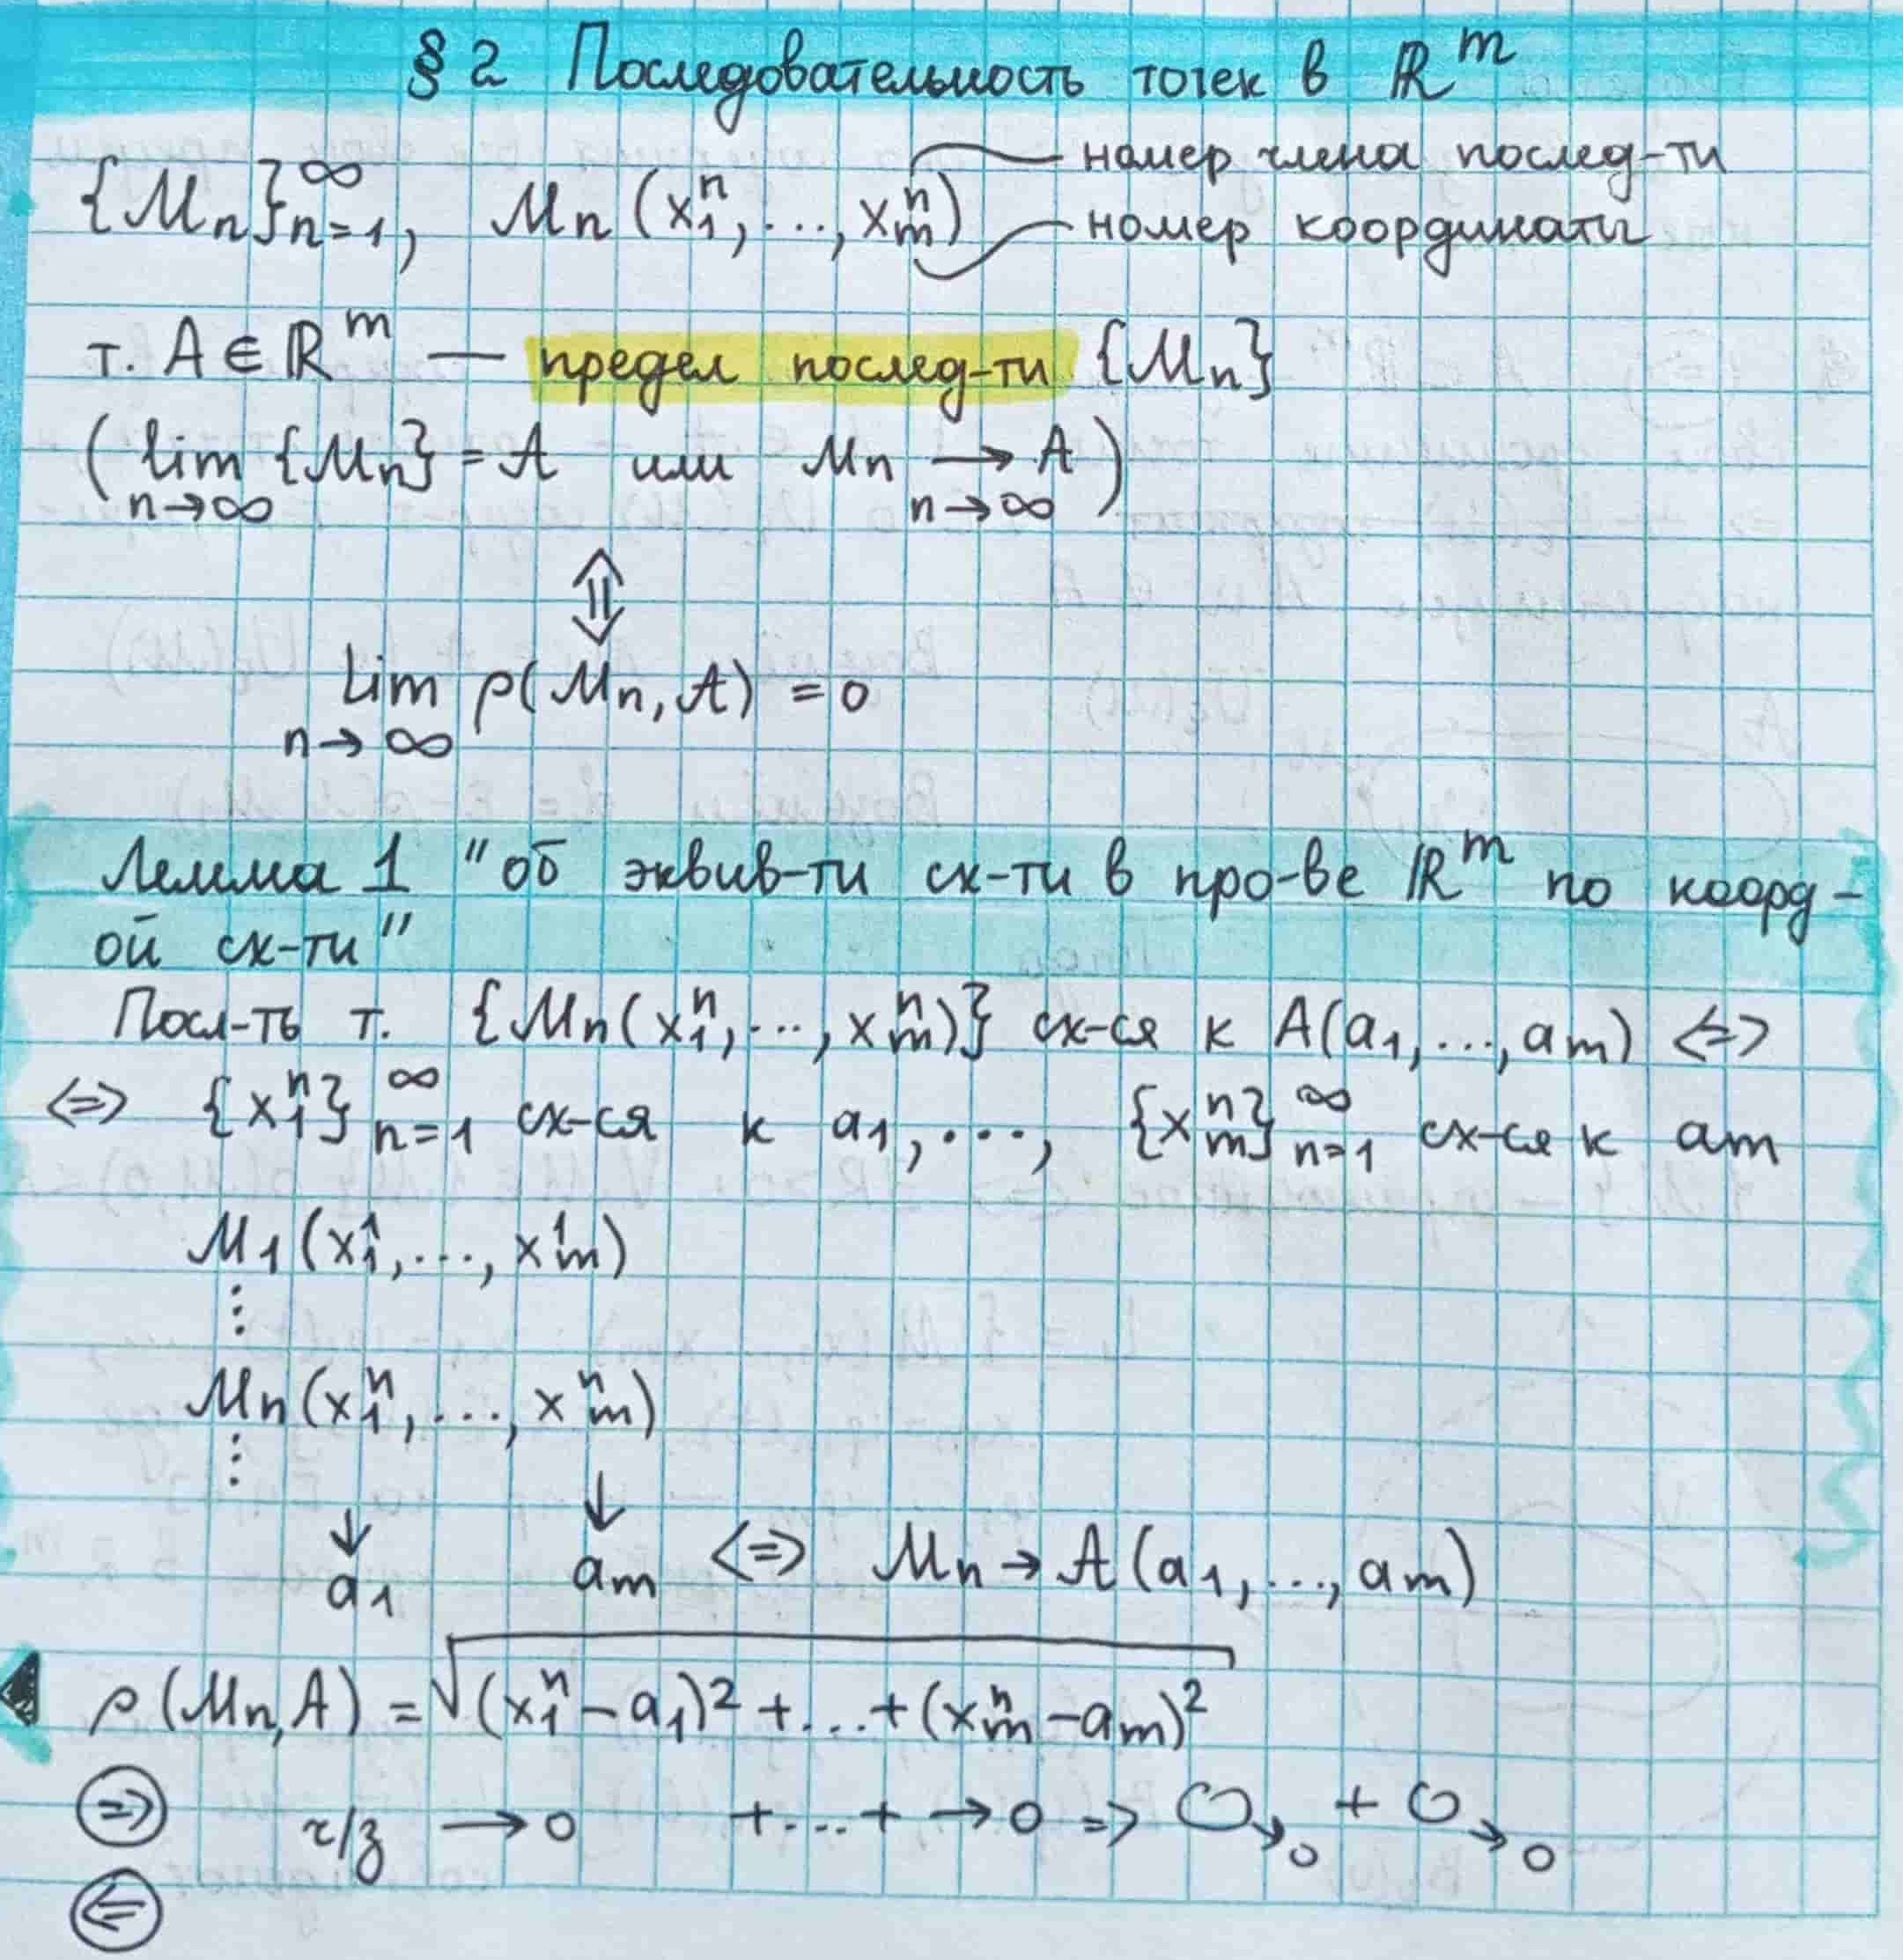 §2 Последовательность точек в ℝ^m
номер члена послед-ти
{Mn}_{n=1}^∞, Mn(x_1^n, ..., x_m^n)
номер координаты
т. A ∈ ℝ^m — предел послед-ти {Mn}
(lim_{n→∞} {Mn} = A или Mn →_{n→∞} A)
⇕
lim_{n→∞} ρ(Mn, A) = 0
Лемма 1 "об эквив-ти сх-ти в про-ве ℝ^m по коорд-
ой сх-ти"
Посл-ть т. {Mn(x_1^n, ..., x_m^n)} сх-ся к A(a1, ..., am) <=>
<=> {x_1^n}_{n=1}^∞ сх-ся к a1, ..., {x_m^n}_{n=1}^∞ сх-ся к am
M1(x_1^1, ..., x_m^1)
⋮
Mn(x_1^n, ..., x_m^n)
⋮
↓ ↓
a1 am <=> Mn → A(a1, ..., am)
ρ(Mn, A) = √((x_1^n - a1)^2 + ... + (x_m^n - am)^2)
=> ч/з → 0 + ... + → 0 => → 0 + → 0
<=